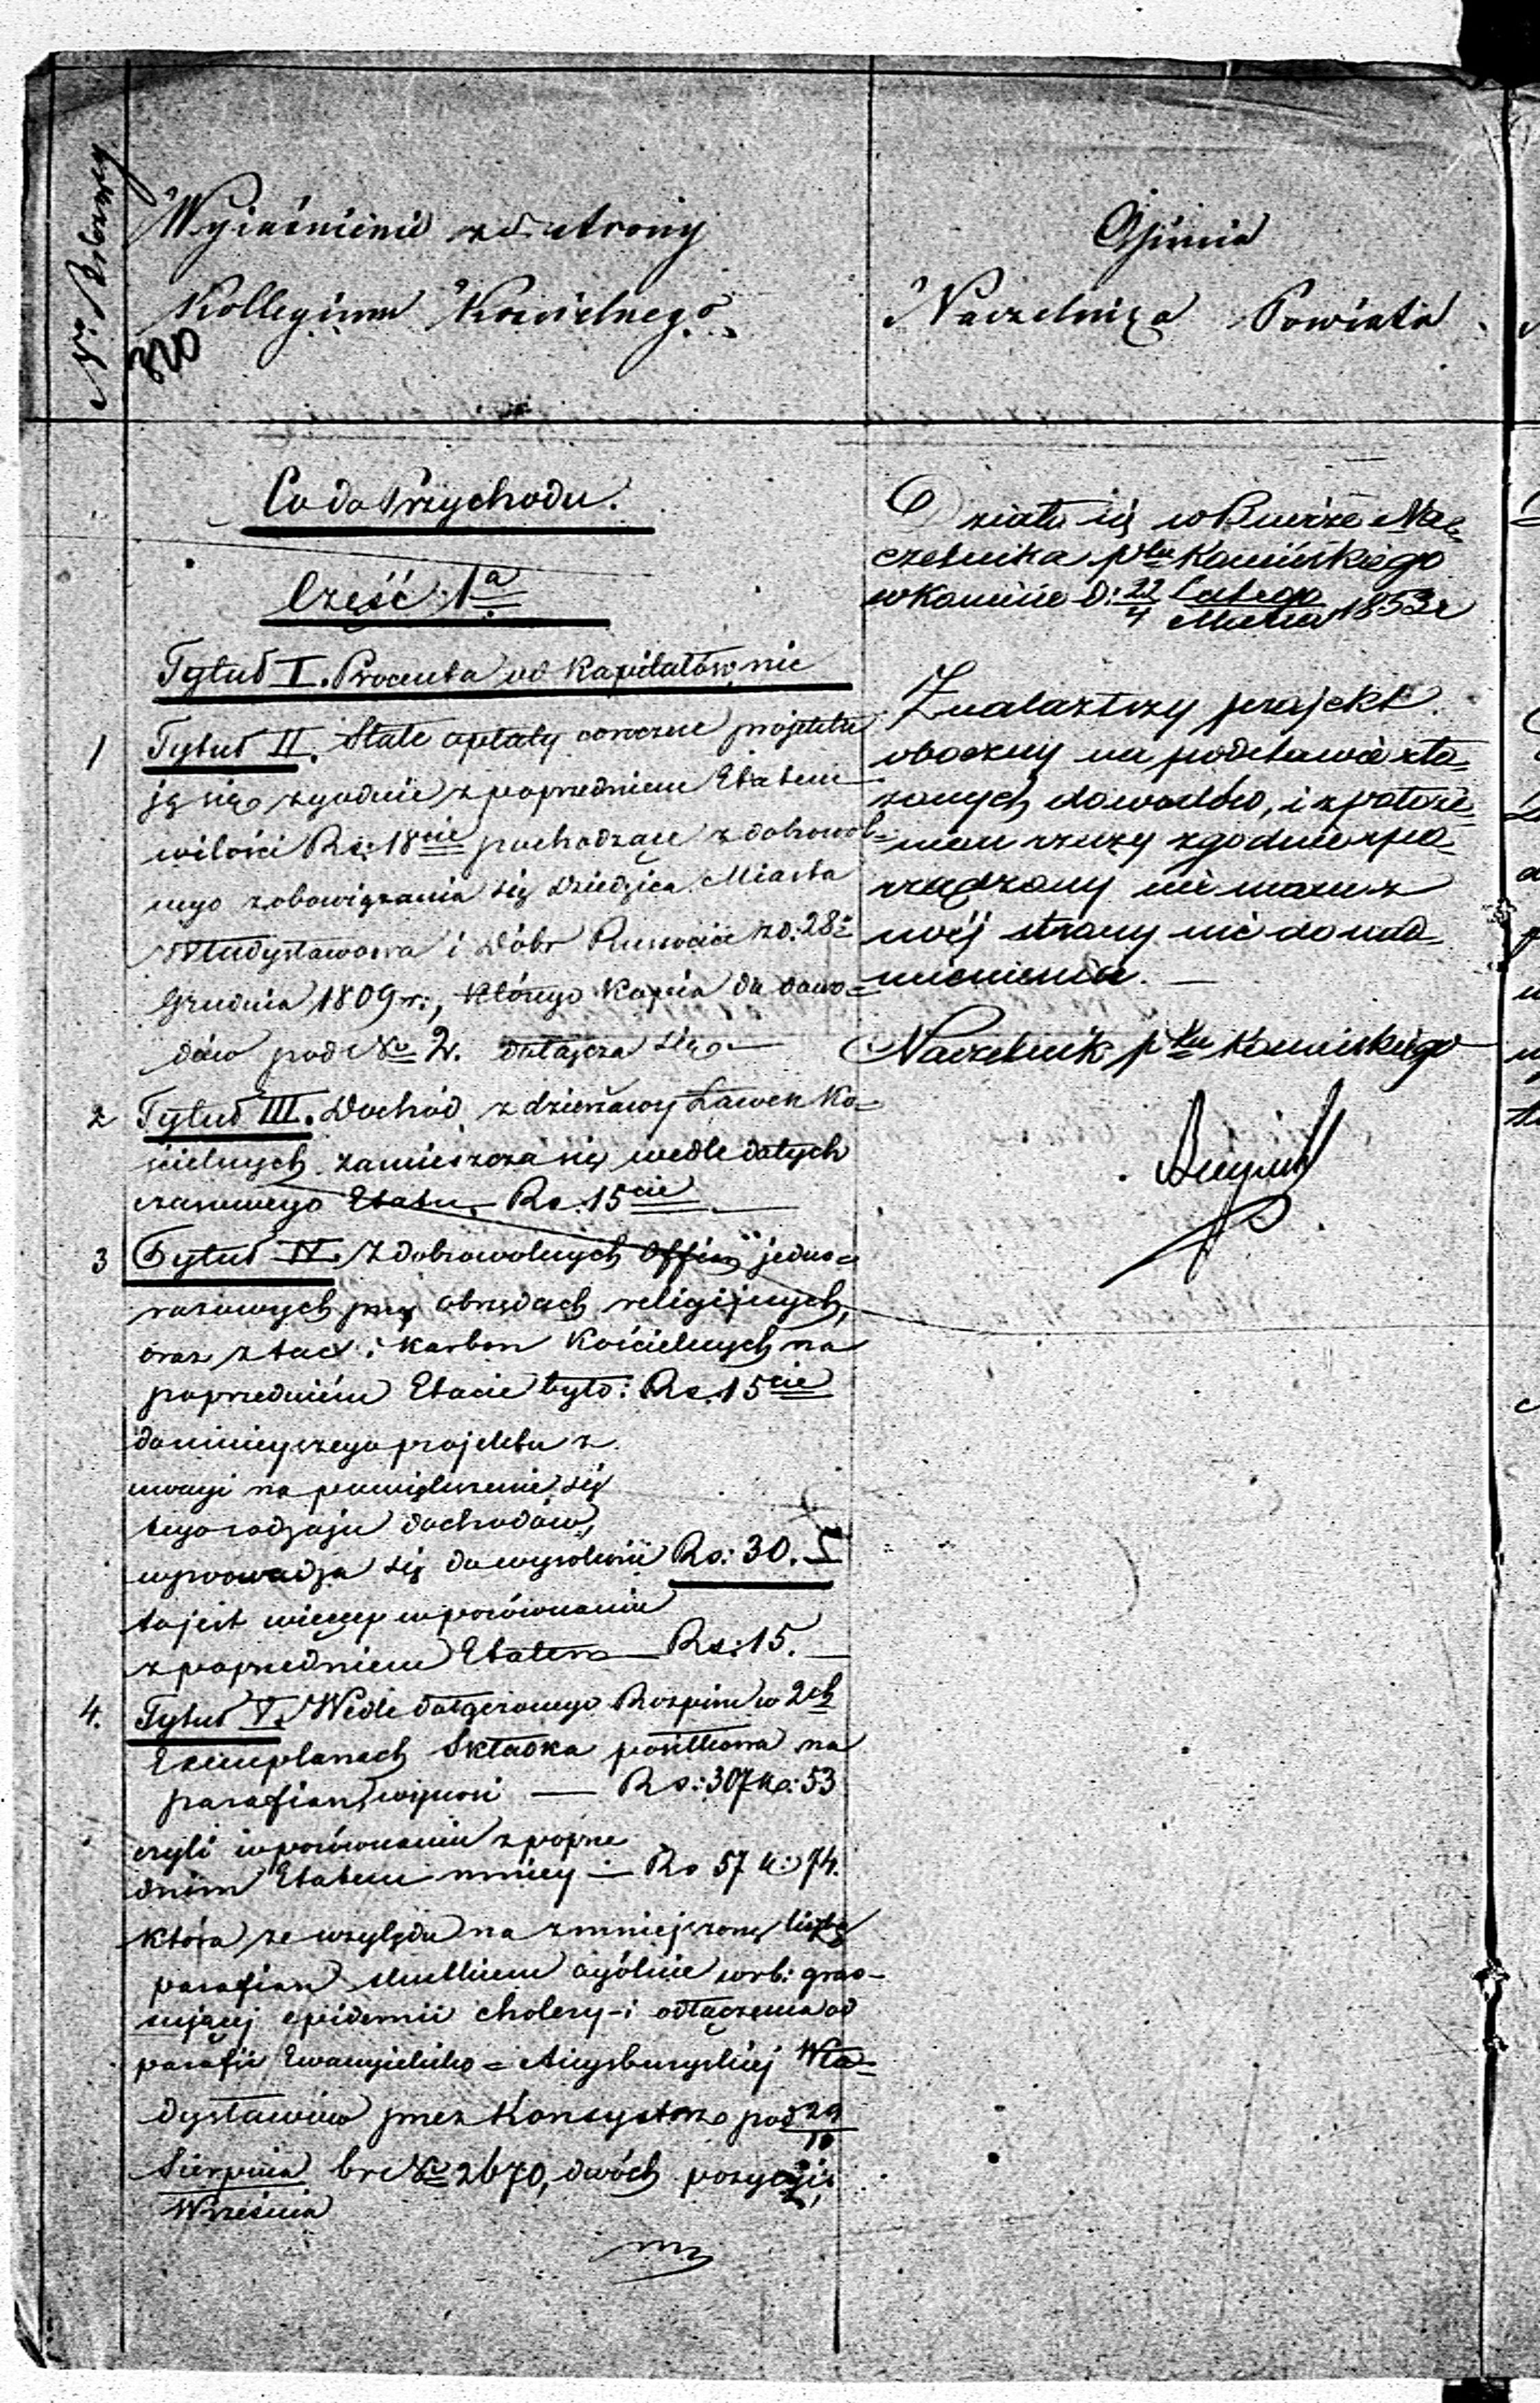 Nr. bieżący
Wyiaśnienie ze strony
Kollegium Kościelnego.
320
Opinia
Naczelnika Powiatu
Co do Przychodu.
Część 1a
Tytuł I. Procenta od kapitałów, nic
1 Tytuł II. Stałe opłaty coroczne projektu
ją się zgodnie z poprzednim Etatem
w ilości Rs: 18cie pochodzące z dobrowol=
nego zobowiązania się Dziedzica Miasta
Władysławowa i Dóbr Russocice z d: 28
Grudnia 1809 r:, którego kopia do dowo=
dów pod No 2. dołącza się
2 Tytuł III. Dochód z dzierżawy Ławek Ko=
ścielnych zamieszcza się wedle dotych
czasowego Etatu. Rs. 15cie
3 Tytuł IV. Z dobrowolnych Offiar jedno=
razowych przy obrzędach religijnych,
oraz z tac i karbon Kościelnych na
poprzedniém Etacie było: Rs. 15cie
do niniejszego projektu z
uwagi na powiększenie się
tego rodzaju dochodów,
wprowadza się do wysokości Rs: 30.
to jest więcej w porównaniu
z poprzedniem Etatem Rs: 15.
4. Tytuł V. Wedle dołączonego Rozpisu w 2ch
Exemplarzach Składka na
parafian, wynosi — Rs: 307 k: 53
czyli w porównaniu z poprze
dnim Etatem mniey — Rs 57 k: 74.
która ze względu na zmniejszoną liczbę
parafian skutkiem ogólnie w r. b: gras=
sującej epidemii cholery i odłączenia od
parafii Ewangielicko = Augsburgskiej Wła=
dysławów przez Konsystorz pod 29/10
Sierpnia/Września br No 2670, dwóch pozycyi,
Działo się w Biurze Na=
czelnika ptu Konińskiego
w Koninie d: 22/4 Lutego/Marca 1853 r
Znalazłszy projekt
oboczny na podstawie zło=
żonych dowodów, i z położe=
niem rzeczy zgodnie spo=
rządzony nie mam z
mojéj strony nic do nad=
mienienia. —
Naczelnik ptu Konińskiego